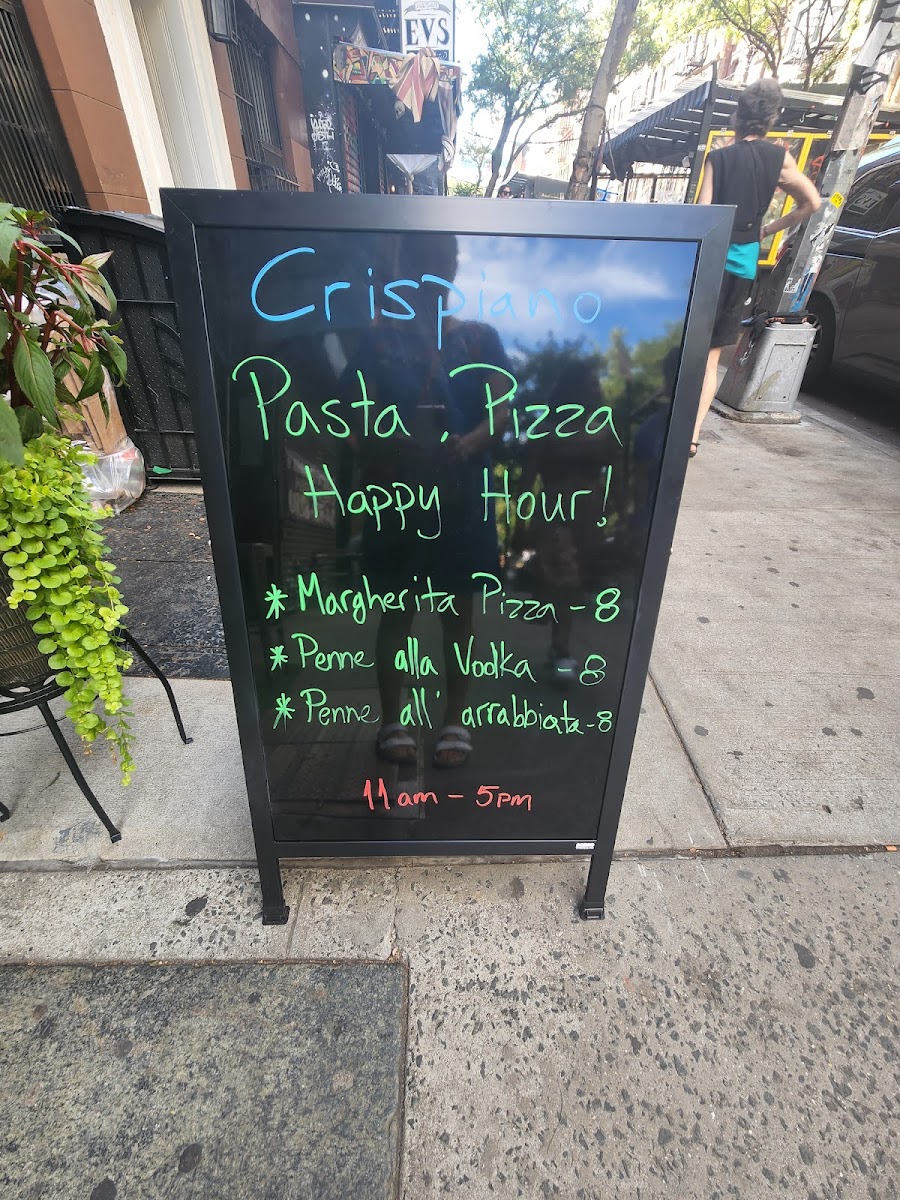 EVS
Crispiano
Pasta, Pizza
Happy Hour!
* Margherita Pizza - 8
* Penne alla Vodka - 8
* Penne all' arrabbiata - 8
11 am - 5pm